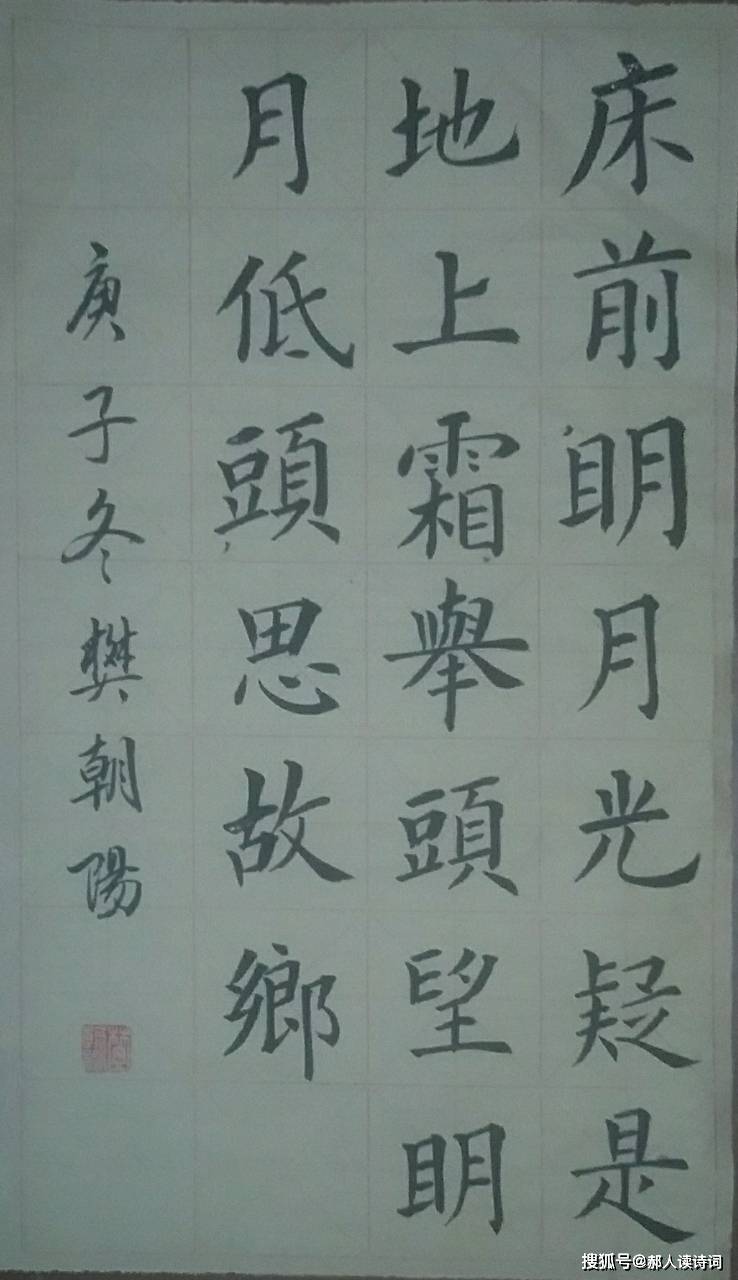 床前明月光疑是
地上霜舉頭望明
月低頭思故鄉
庚子冬樊朝陽
搜狐号@郝人读诗词